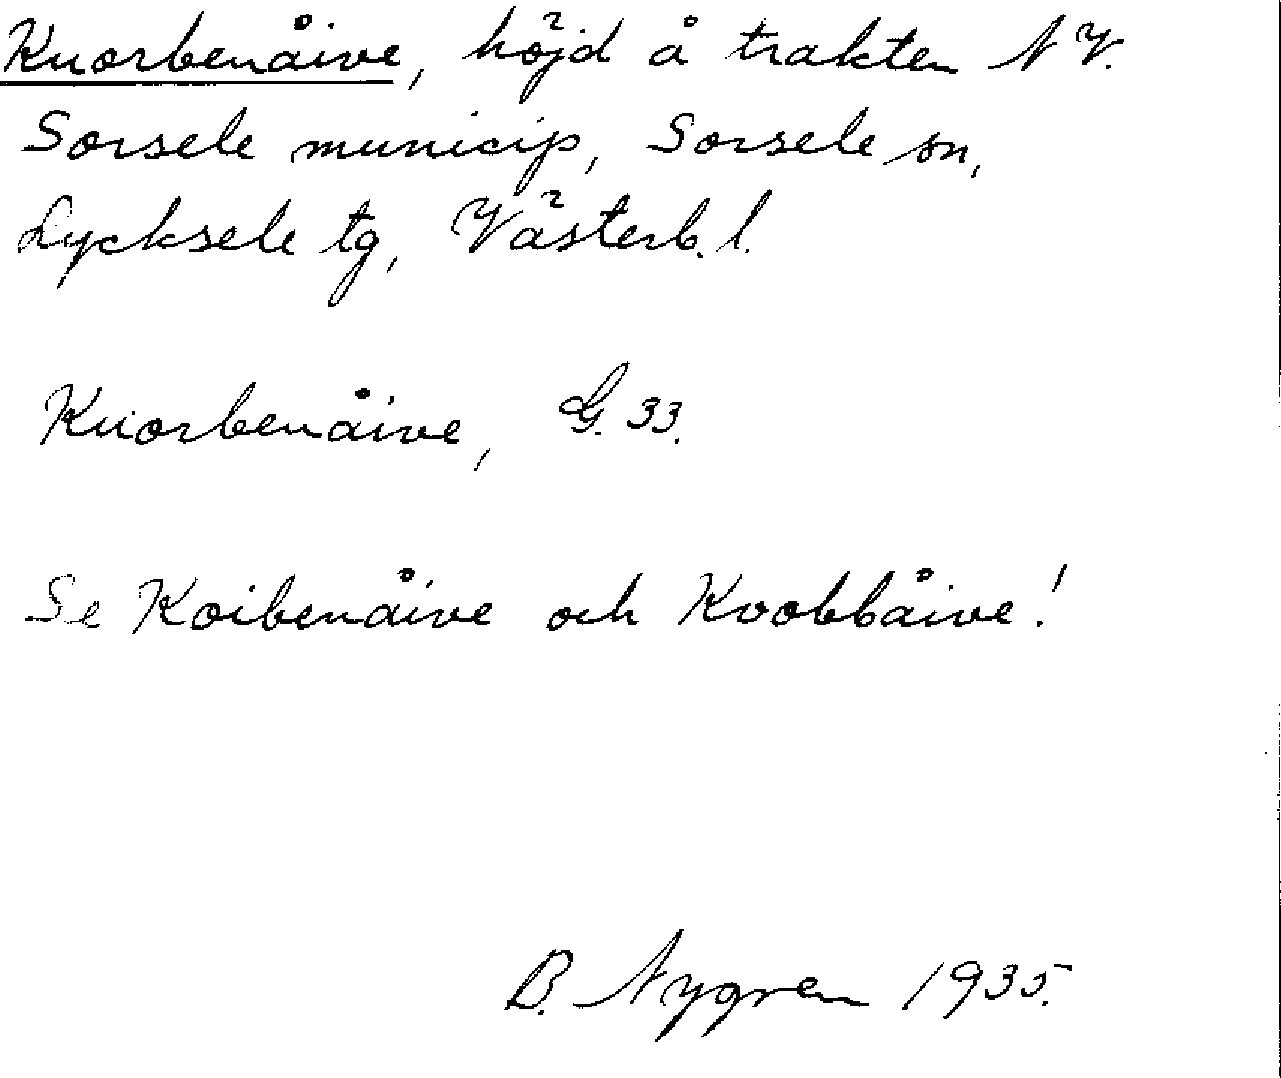 Kuorbenåive, höjd å trakten NV.
Sorsele municip, Sorsele sn,
Lycksele tg, Västerb. l.
Kuorbenåive, G. 33.
Se Koibenåive och Kvobbåive!
B. Nygren 1935.